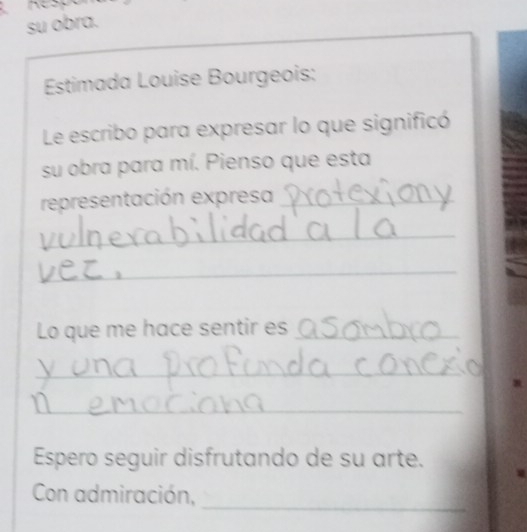 su obra.
Estimada Louise Bourgeois:
Le escribo para expresar lo que significó
su obra para mí. Pienso que esta
representación expresa protexiony
vulnerabilidad a la
vez.
Lo que me hace sentir es asombro
y una profunda conexio
n emociona
Espero seguir disfrutando de su arte.
Con admiración,